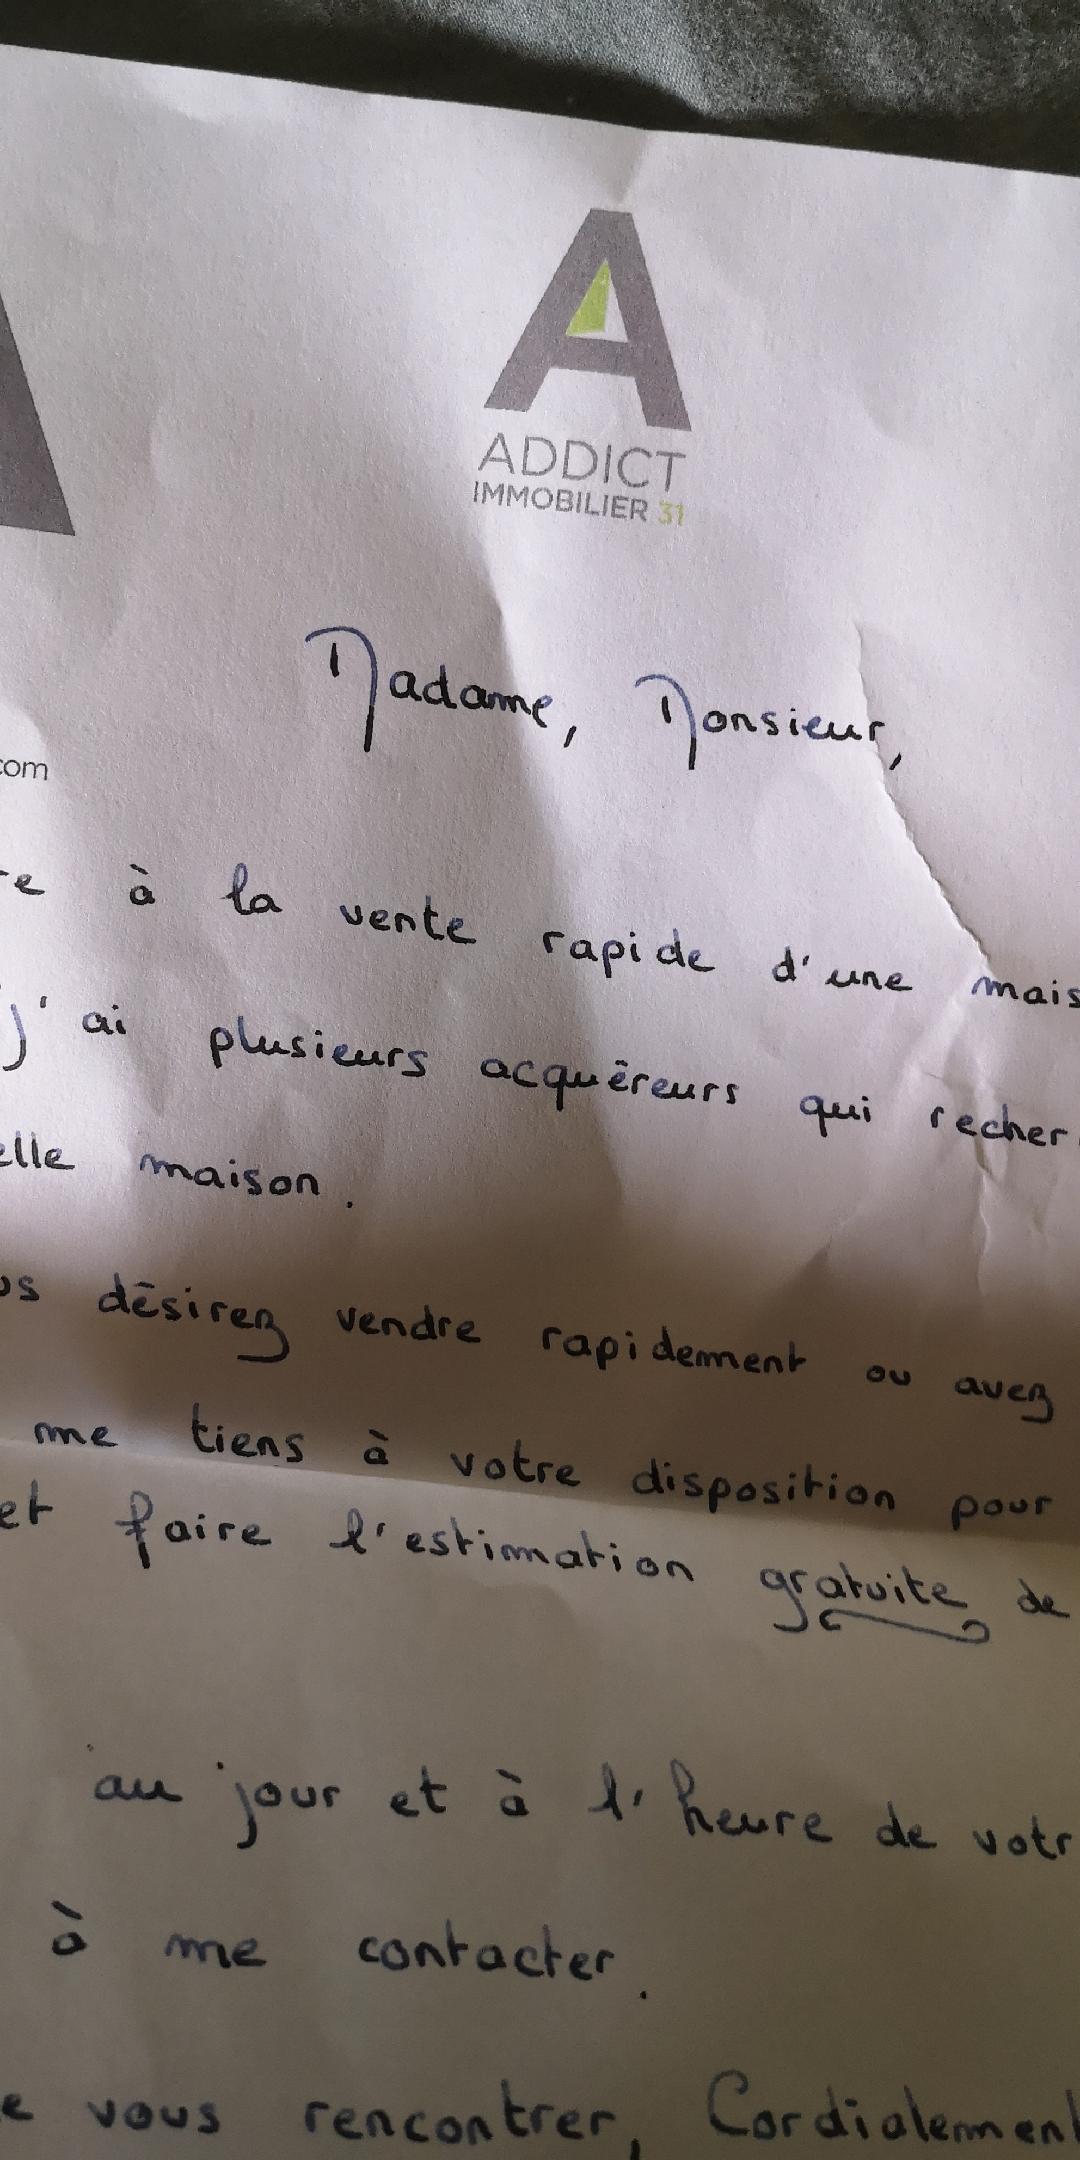 ADDICT
IMMOBILIER 31
Madame, Monsieur,
com
re à la vente rapide d'une mais
j'ai plusieurs acquéreurs qui recher
elle maison.
us désirez vendre rapidement ou avez
me tiens à votre disposition pour
et faire l'estimation gratuite de
au jour et à l'heure de votr
à me contacter.
e vous rencontrer, Cordialement